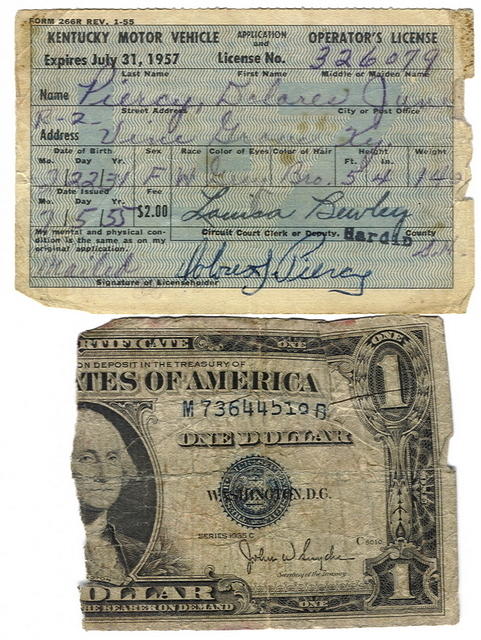 FORM 266R REV. 1-55
KENTUCKY MOTOR VEHICLE APPLICATION and OPERATOR'S LICENSE
Expires July 31, 1957 License No. 326079
Last Name First Name Middle or Maiden Name
Name Piercy, Dolores
Street Address City or Post Office
R-2
Address Vine Grove
Date of Birth Sex Race Color of Eyes Color of Hair Height Weight
Mo. Day Yr. Ft. In.
F W Bro. 5 4
Date Issued Fee
Mo. Day Yr. $2.00 Louisa Bewley
7 5 55
My mental and physical con-
dition is the same as on my
original application.
Circuit Court Clerk or Deputy. Hardin County
Mailed Dolores J. Piercy
Signature of Licenseholder
RTIFICATE ONE ONE
ON DEPOSIT IN THE TREASURY OF
TES OF AMERICA 1
M 73644519
ONE DOLLAR
WASHINGTON, D.C.
SERIES 1935 C
C 6010
John W Snyder
Secretary of the Treasury
OLLAR 1
HE BEARER ON DEMAND ONE